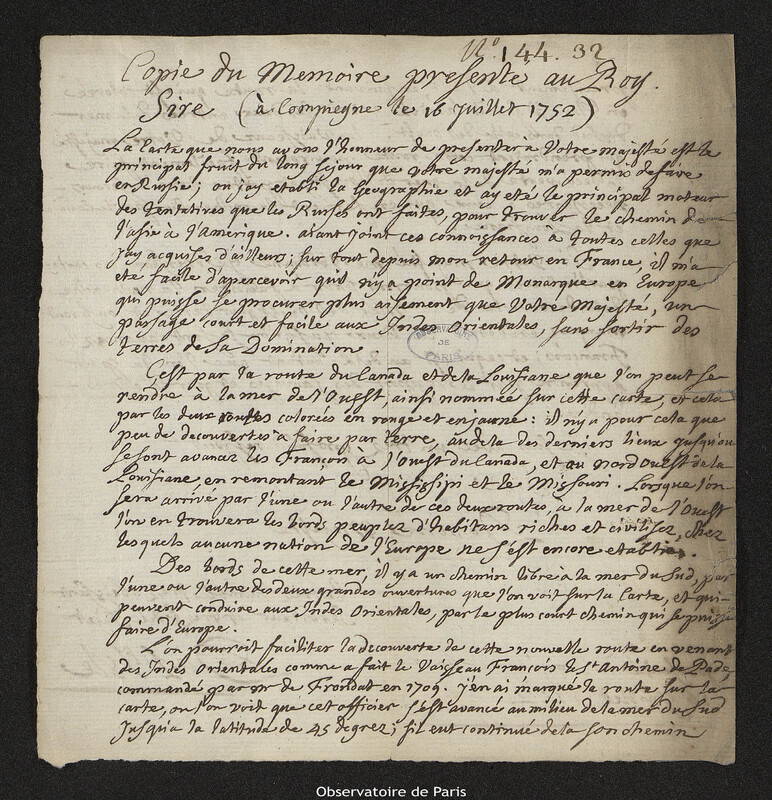 N.º 144. 32
Copie du Memoire presenté au Roy.
Sire (à Compiegne le 16 Juillet 1752)
La Carte que nous avons l'honneur de presenter à Votre majesté est le
principal fruit du long sejour que votre majesté m'a permis de faire
en Russie; ou j'ay etabli la Geographie et ay eté le principal moteur
des tentatives que les Russes ont faites, pour trouver le chemin de
l'asie à l'amerique. aiant joint ces connoissances à toutes celles que
j'ay acquises d'ailleurs; sur tout depuis mon retour en France, il m'a
eté facile d'apercevoir qu'il n'y a point de Monarque en Europe
qui puisse se procurer plus aisement que Votre Majesté, un
passage court et facile aux Indes Orientales, sans sortir des
terres de sa Domination
OBSERVATOIRE DE PARIS
C'est par la route du Canada et de la Louisiane que l'on peut se
rendre à la mer de l'Ouest, ainsi nommée sur cette carte, et cela
par les deux routes colorées en rouge et en jaune: il n'y a pour cela que
peu de decouvertes à faire par terre, au dela des derniers lieux jusqu'ou
se sont avancez les François à l'Ouest du Canada, et au nord ouest de la
Louisiane, en remontant le Mississipi et le Missouri. Lorsque l'on
sera arrivé par l'une ou l'autre de ces deux routes, a la mer de l'Ouest
l'on en trouvera les bords peuplez d'habitans riches et civilisez, chez
lesquels aucune nation de l'Europe ne s'est encore etablie.
Des bords de cette mer, il y a un chemin libre à la mer du Sud, par
l'une ou l'autre des deux grandes ouvertures que l'on voit sur la Carte, et qui
peuvent conduire aux Indes Orientales, par le plus court chemin qui se puisse
faire d'Europe.
L'on pourroit faciliter la decouverte de cette nouvelle route en venant
des Indes Orientales comme a fait le Vaisseau François le St Antoine de Pade,
commandé par mr de Frondat en 1709. j'en ai marqué la route sur la
carte, ou l'on voit que cet officier s'est avancé au milieu de la mer du Sud
Jusqu'à la latitude de 45 degrez; s'il eut continué de la son chemin
Observatoire de Paris